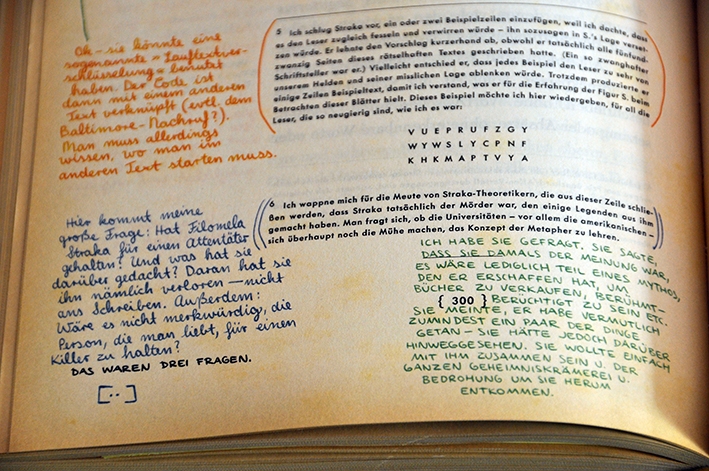 5 Ich schlug Straka vor, ein oder zwei Beispielzeilen einzufügen, weil ich dachte, dass
es den Leser zugleich fesseln und verwirren würde – ihn sozusagen in S.'s Lage verset-
zen würde. Er lehnte den Vorschlag kurzerhand ab, obwohl er tatsächlich alle fünfund-
zwanzig Seiten dieses rätselhaften Textes geschrieben hatte. (Ein so zwanghafter
Schriftsteller war er.) Vielleicht entschied er, dass jedes Beispiel den Leser zu sehr von
unserem Helden und seiner misslichen Lage ablenken würde. Trotzdem produzierte er
einige Zeilen Beispieltext, damit ich verstand, was er für die Erfahrung der Figur S. beim
Betrachten dieser Blätter hielt. Dieses Beispiel möchte ich hier wiedergeben, für all die
Leser, die so neugierig sind, wie ich es war:
VUEPRUFZGY
WYWSLYCPNF
KHKMAPTVYA
Ok – sie könnte eine
sogenannte »Lauftextver-
schlüsselung« benutzt
haben. Der Code ist
dann mit einem anderen
Text verknüpft (evtl. dem
Baltimore-Nachruf?).
Man muss allerdings
wissen, wo man im
anderen Text starten muss.
6 Ich wappne mich für die Meute von Straka-Theoretikern, die aus dieser Zeile schlie-
ßen werden, dass Straka tatsächlich der Mörder war, den einige Legenden aus ihm
gemacht haben. Man fragt sich, ob die Universitäten – vor allem die amerikanischen –
sich überhaupt noch die Mühe machen, das Konzept der Metapher zu lehren.
Hier kommt meine
große Frage: Hat Filomela
Straka für einen Attentäter
gehalten? Und was hat sie
darüber gedacht? Daran hat sie
ihn nämlich verloren – nicht
ans Schreiben. Außerdem:
Wäre es nicht merkwürdig, die
Person, die man liebt, für einen
Killer zu halten?
DAS WAREN DREI FRAGEN.
[··]
ICH HABE SIE GEFRAGT. SIE SAGTE,
DASS SIE DAMALS DER MEINUNG WAR,
ES WÄRE LEDIGLICH TEIL EINES MYTHOS,
DEN ER ERSCHAFFEN HAT, UM
BÜCHER ZU VERKAUFEN, BERÜHMT–
BERÜCHTIGT ZU SEIN ETC.
SIE MEINTE, ER HABE VERMUTLICH
ZUMINDEST EIN PAAR DER DINGE
GETAN – SIE HÄTTE JEDOCH DARÜBER
HINWEGGESEHEN. SIE WOLLTE EINFACH
MIT IHM ZUSAMMEN SEIN U. DER
GANZEN GEHEIMNISKRÄMEREI U.
BEDROHUNG UM SIE HERUM
ENTKOMMEN.
{ 300 }